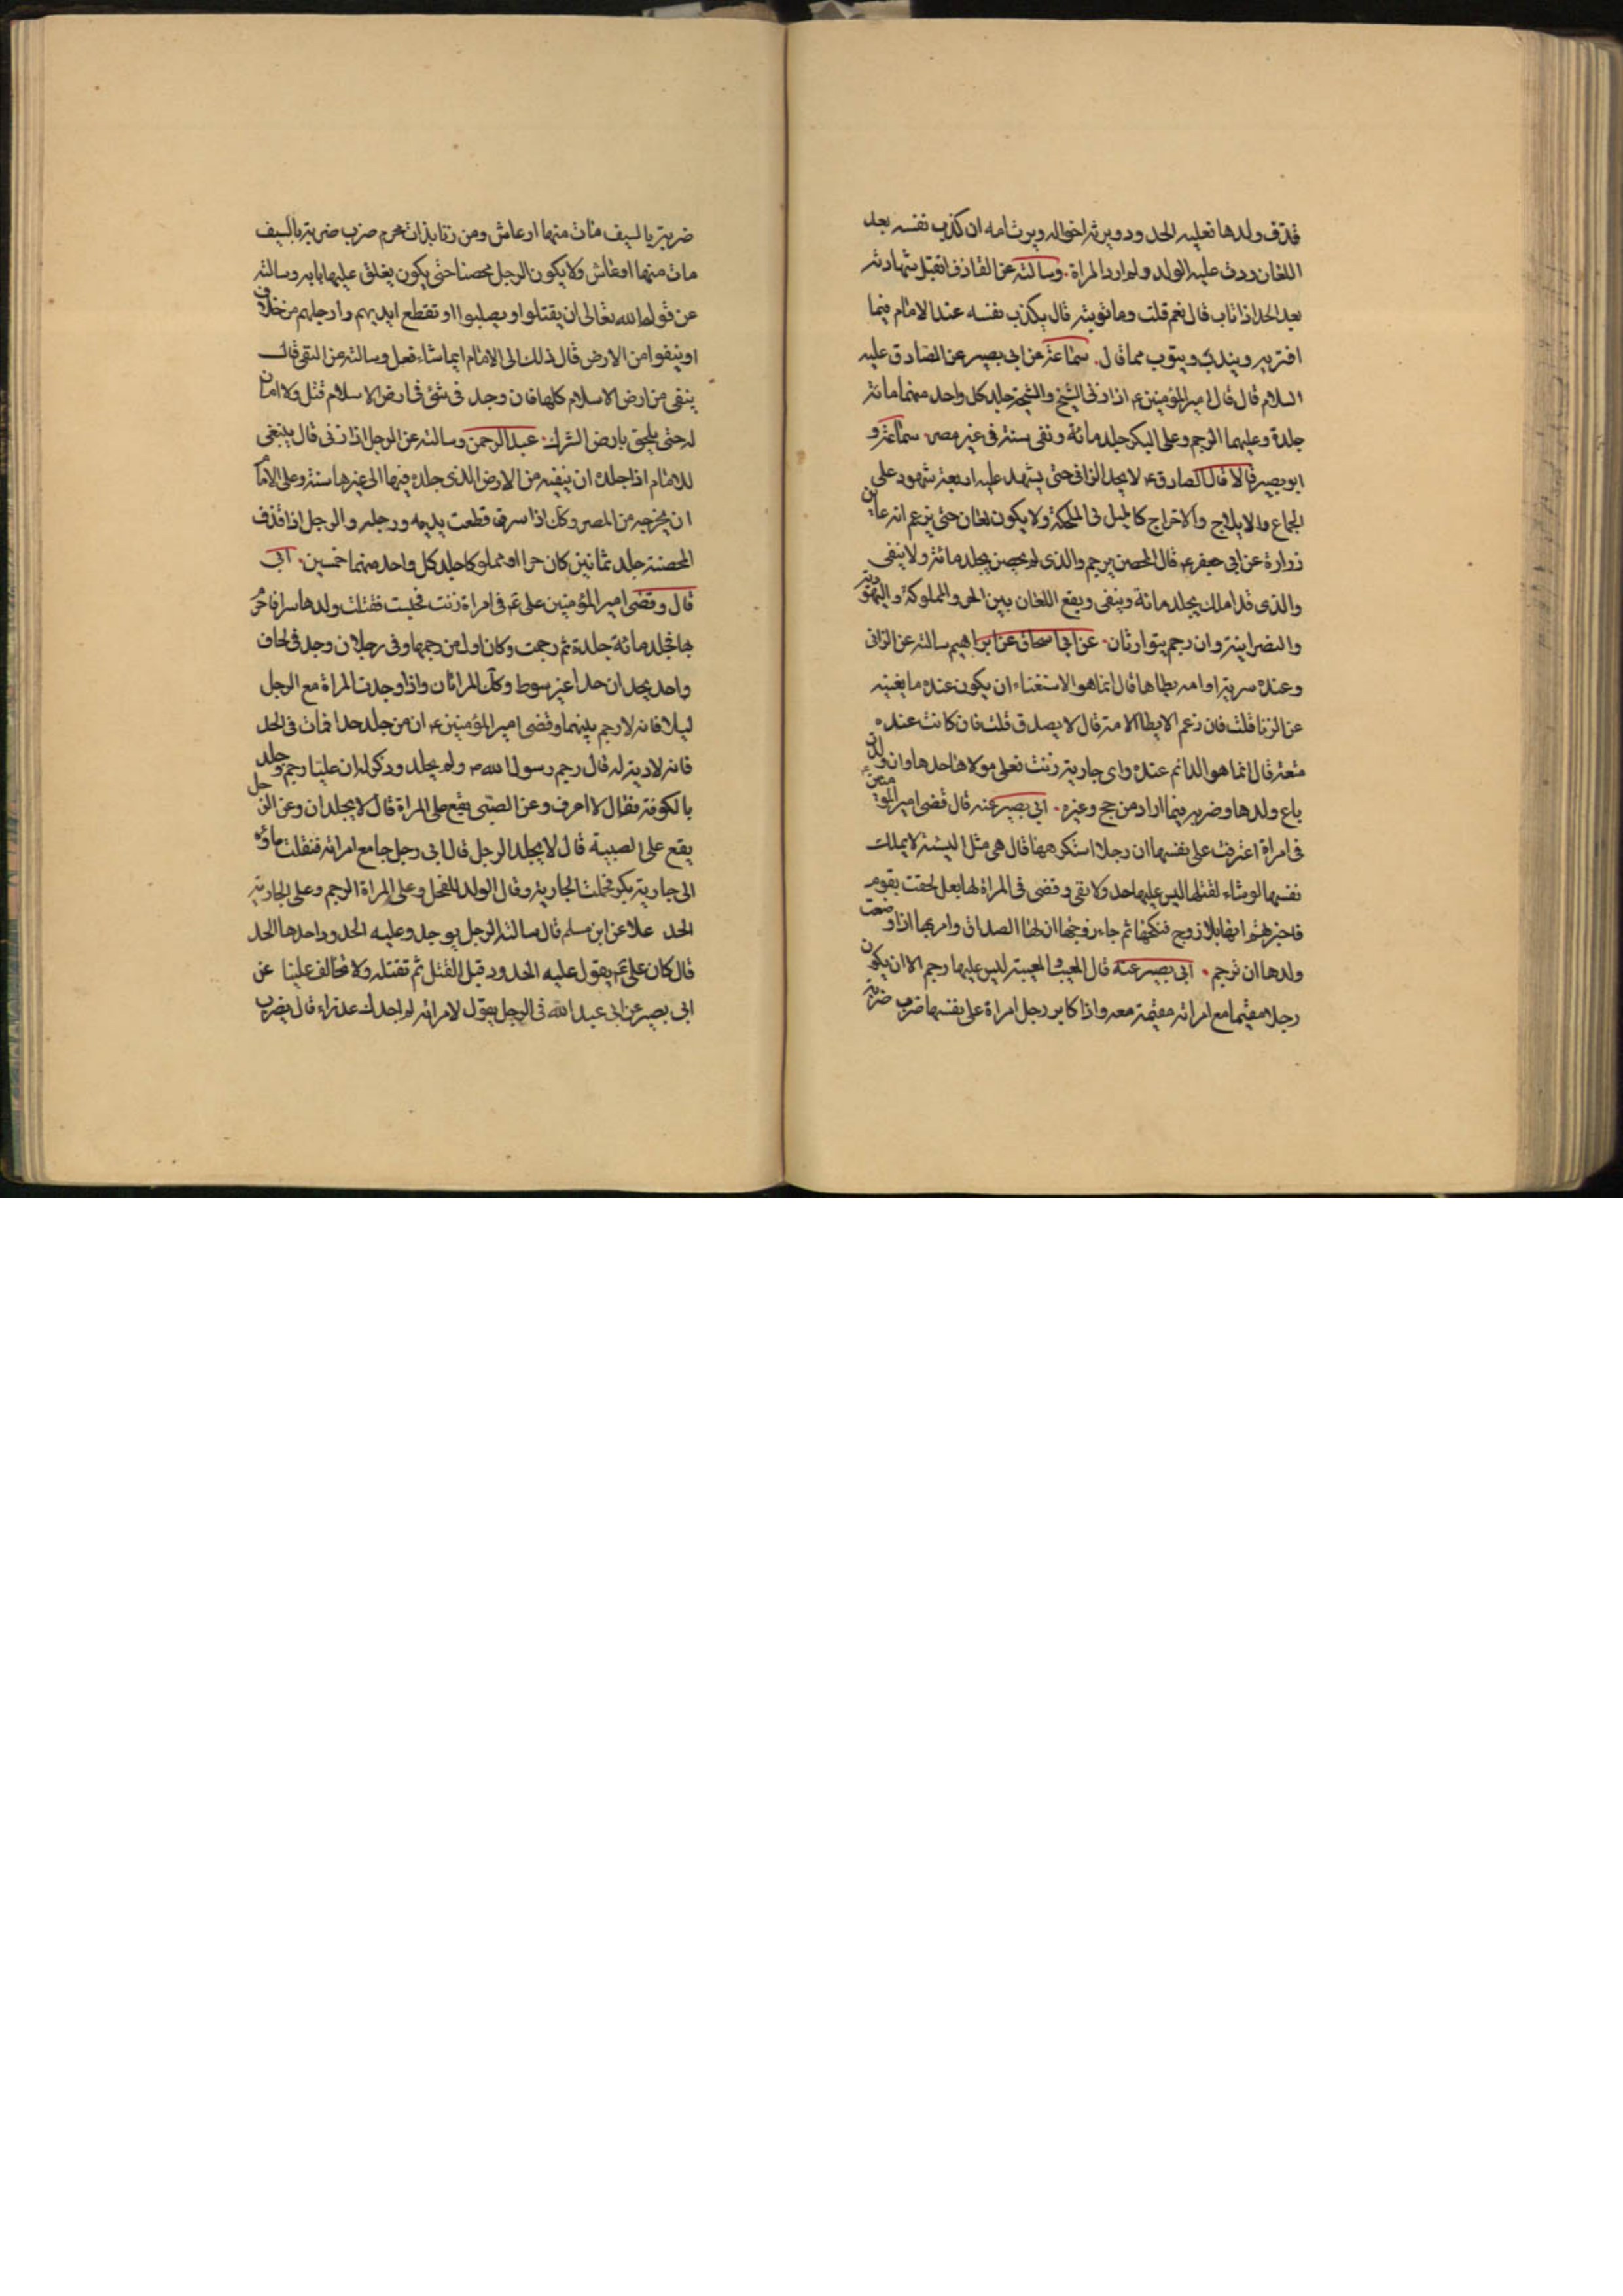 قذف ولدها فعليه الحد ود ويرثه اخواله ويرث امه ان كذب نفسه بعد
اللعان ردت عليه الولد ولم ارد المراة. وسالته عن القاذف اتقبل شهادته
بعد الحد اذا تاب قال نعم قلت وما توبته قال يكذب نفسه عند الامام فيما
افتريه ويندب ويتوب مما قال. سماعة عن ابي بصير عن الصادق عليه
السلام قال قال امير المؤمنين ع اذا زنى الشيخ والشيخة جلد كل واحد منهما مائة
جلدة وعليهما الرجم وعلى البكر جلد مائة ونفى سنة في غير مصر. سماعة و
ابو بصير قالا قال الصادق ع لا يجلد الزاني حتى يشهد عليه اربعة شهود على
الجماع والايلاج والاخراج كالميل في المكحلة ولا يكون لعان حتى يزعم انه عاين
زرارة عن ابي جعفر ع قال المحصن يرجم والذى لم يحصن يجلد مائة ولا ينفى
والذى قد املك يجلد مائة وينفى ويقع اللعان بين الحر والمملوكة واليهودية
والنصرانية وان رجم يتوارثان. عن ابي اسحاق عن ابراهيم سالته عن الزانى
وعنده سرية او امه يطاها قال انما هو الاستغناء ان يكون عنده ما يغنيه
عن الزنا قلت فان زعم الا يطا الامة قال لا يصدق قلت فان كانت عنده
متعة قال انما هو الدائم عنده واى جارية زنت فعلى مولاها حدها وان ولدت
باع ولدها وضربه فيما اراد من حج وغيره. ابي بصير عنه قال قضى امير المؤمنين ع
في امراة اعترفت على نفسها ان رجلا استكرهها قال هي مثل السبية لا يملك
نفسها لو شاء لقتلها ليس عليها حد ولا نفى وقضى في المراة لها بعل لحقت بقوم
فاخبرتهم انها بلا زوج فنكحها ثم جاء زوجها ان لها الصداق وامر بها اذا وضعت
ولدها ان ترجم. ابي بصير عنه قال المغيب والمغيبة ليس عليها رجم الا ان يكون
رجلا مقيما مع امراته مقيمة معه واذا كابر رجل امراة على نفسها ضرب ضربة
ضربة بالسيف مات منها او عاش ومن زنا بذات محرم ضرب ضربة بالسيف
مات منها او عاش ولا يكون الرجل محصنا حتى يكون يغلق عليها بابه وسالته
عن قول الله تعالى ان يقتلوا او يصلبوا او تقطع ايديهم وارجلهم من خلاف
او ينفوا من الارض قال ذلك الى الامام ايما شاء فعل وسالته عن النفى قال
ينفى من ارض الاسلام كلها فان وجد في شئ في ارض الاسلام قتل ولا امان
له حتى يلحق بارض الشرك. عبد الرحمن وسالته عن الرجل اذا زنى قال ينبغى
للامام اذا جلده ان ينفيه من الارض الذى جلده فيها الى غيرها سنة وعلى الامام
ان يخرجه من المصر وكك اذا سرق قطعت يديه ورجله والرجل اذا قذف
المحصنة جلد ثمانين كان حرا او مملوكا جلد كل واحد منهما خمسين. ابي
قال وقضى امير المؤمنين على ع في امراة زنت فحبلت فقتلت ولدها سرا فامر
بها فجلد مائة جلدة ثم رجمت وكان اول من رجمها وفي رجلان وجد في لحاف
واحد يجلدان حدا غير سوط وكك المراتان واذا وجدت المراة مع الرجل
ليلا فانه لا رجم بينهما وقضى امير المؤمنين ع ان من جلد حدا فمات في الحد
فانه لا دية له قال رجم رسول الله ص ولم يجلد وذكر له ان عليا رجم وجلد
بالكوفة فقال لا اعرف وعن الصبى يقع على المراة قال لا يجلدان وعن الرجل
يقع على الصبية قال لا يجلد الرجل قال ابى رجل جامع امراته فنقلت ماؤه
الى جارية بكر فحملت الجارية وقال الولد للفحل وعلى المراة الرجم وعلى الجارية
الحد علا عن ابن مسلم قال سالته الرجل يوجد وعليه الحدود احدها الحد
قال كان على ع يقول عليه الحدود قبل القتل ثم تقتله ولا تخالف علينا عن
ابى بصير عن ابى عبد الله في الرجل يقول لامراته لم اجدك عذراء قال يضرب